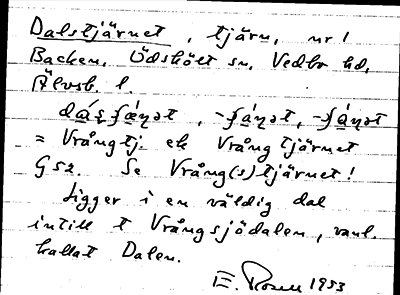 Dalstjärnet, tjärn, nr 1
Backen, Ödskölt sn, Vedbo hd,
Älvsb. l.
= Vrångtj. el Vrång tjärnet
G52. Se Vrång(s)tjärnet!
Ligger i en väldig dal
intill t Vrångsjödalen, vanl.
kallat Dalen.
E. Rosell 1953